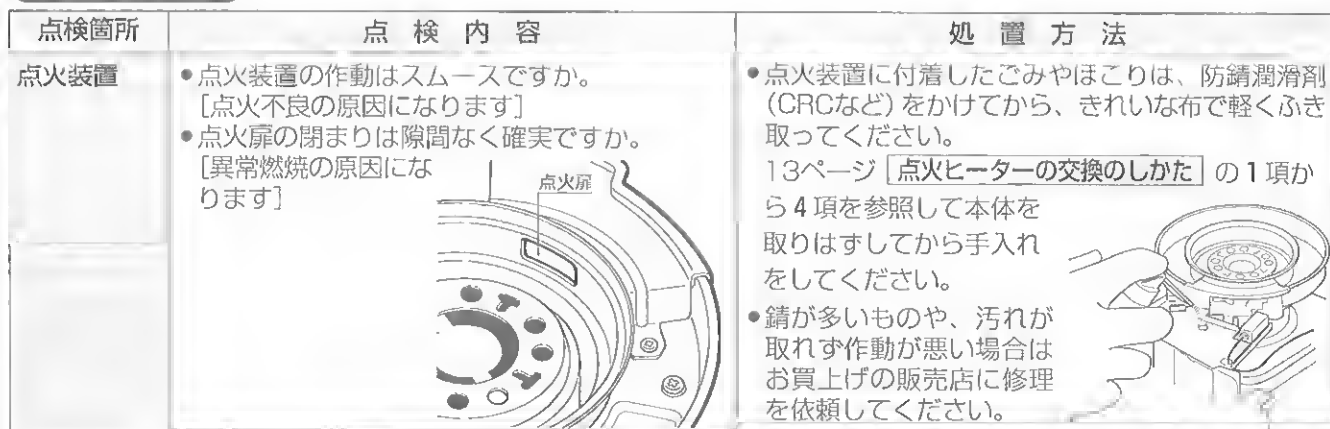 点検箇所
点検内容
処置方法
点火装置
●点火装置の作動はスムースですか。
［点火不良の原因になります］
●点火扉の閉まりは隙間なく確実ですか。
［異常燃焼の原因にな
ります］
点火扉
●点火装置に付着したごみやほこりは、防錆潤滑剤
（CRCなど）をかけてから、きれいな布で軽くふき
取ってください。
13ページ 点火ヒーターの交換のしかた の1項か
ら4項を参照して本体を
取りはずしてから手入れ
をしてください。
●錆が多いものや、汚れが
取れず作動が悪い場合は
お買上げの販売店に修理
を依頼してください。